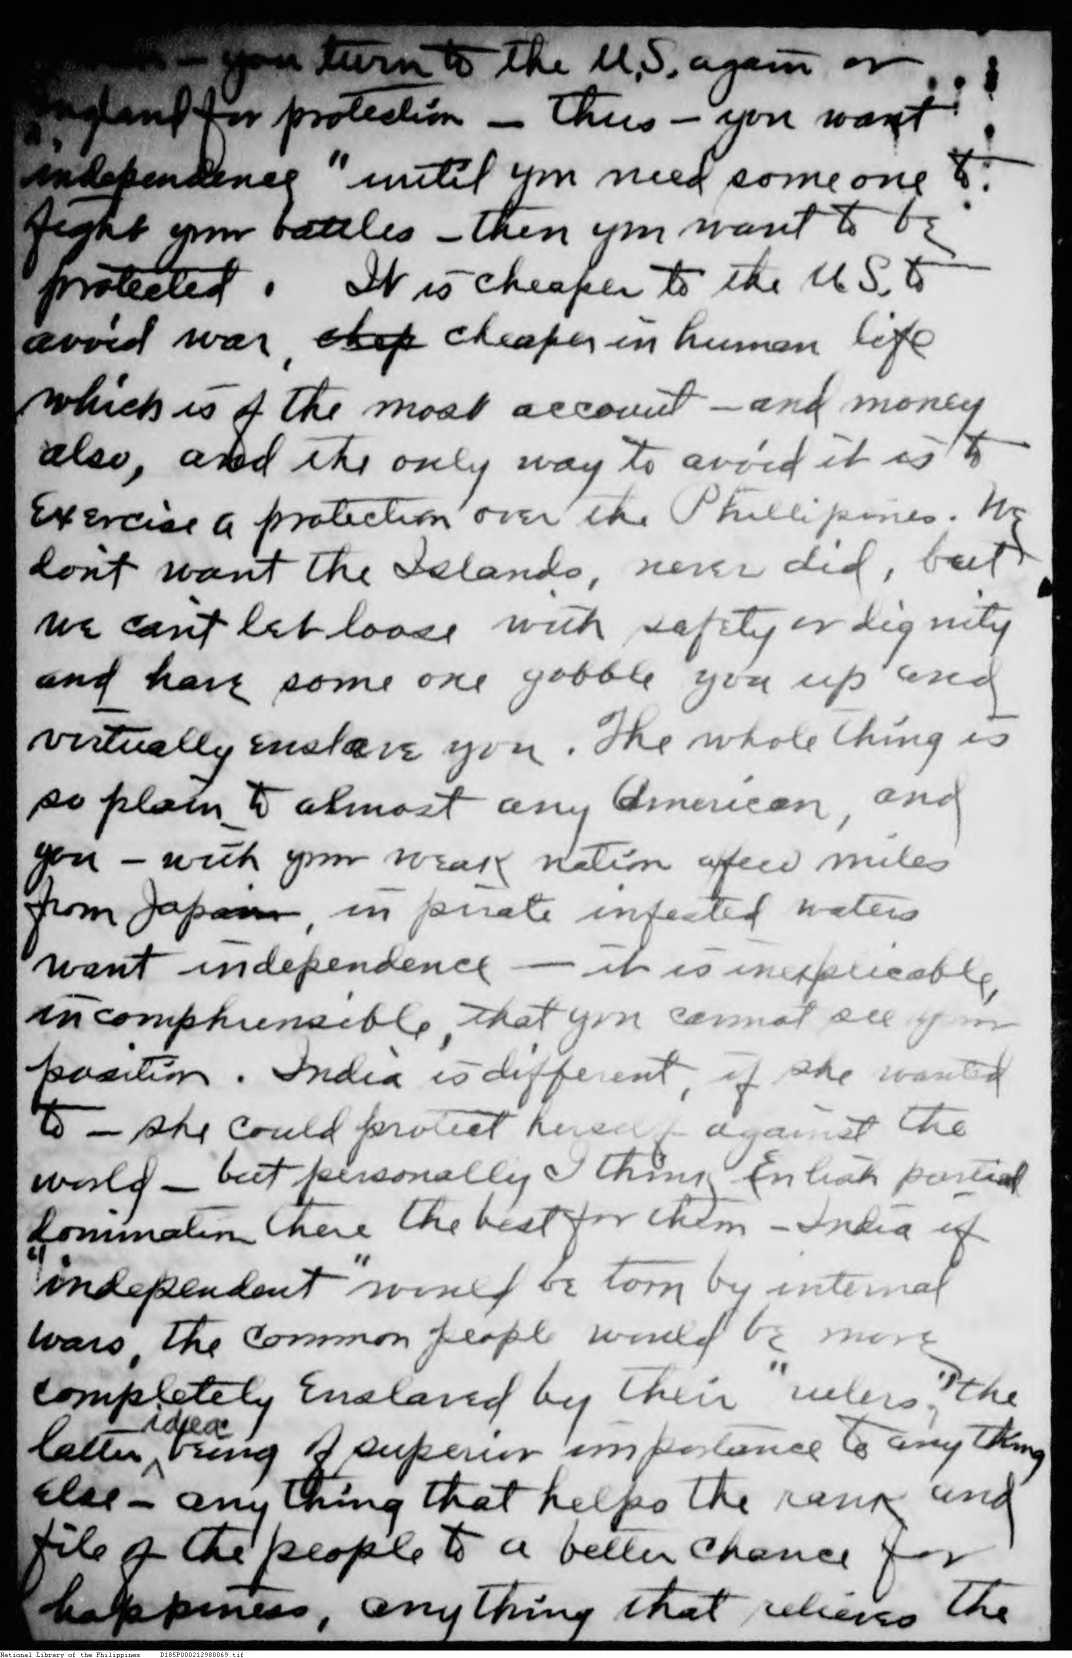 — you turn to the U.S. again or
England for protection — thus — you want
"independence" until you need someone to
fight your battles — then you want to be
protected. It is cheaper to the U.S. to
avoid war, cheap cheaper in human life
which is of the most account — and money
also, and the only way to avoid it is to
exercise a protection over the Phillipines. We
don't want the Islands, never did, but
we can't let loose with safety or dignity
and have some one gobble you up and
virtually enslave you. The whole thing is
so plain to almost any American, and
you — with your weak nation a few miles
from Japan, in pirate infested waters
want independence — it is inexplicable,
incomphrensible, that you cannot see your
position. India is different, if she wanted
to — she could protect herself against the
world — but personally I think English partial
domination there the best for them — India if
"independent" would be torn by internal
wars, the common people would be more
completely enslaved by their "rulers," the
latter idea being of superior importance to anything
else — anything that helps the rank and
file of the people to a better chance for
happiness, anything that relieves the
National Library of the Philippines D185P000212980069.tif